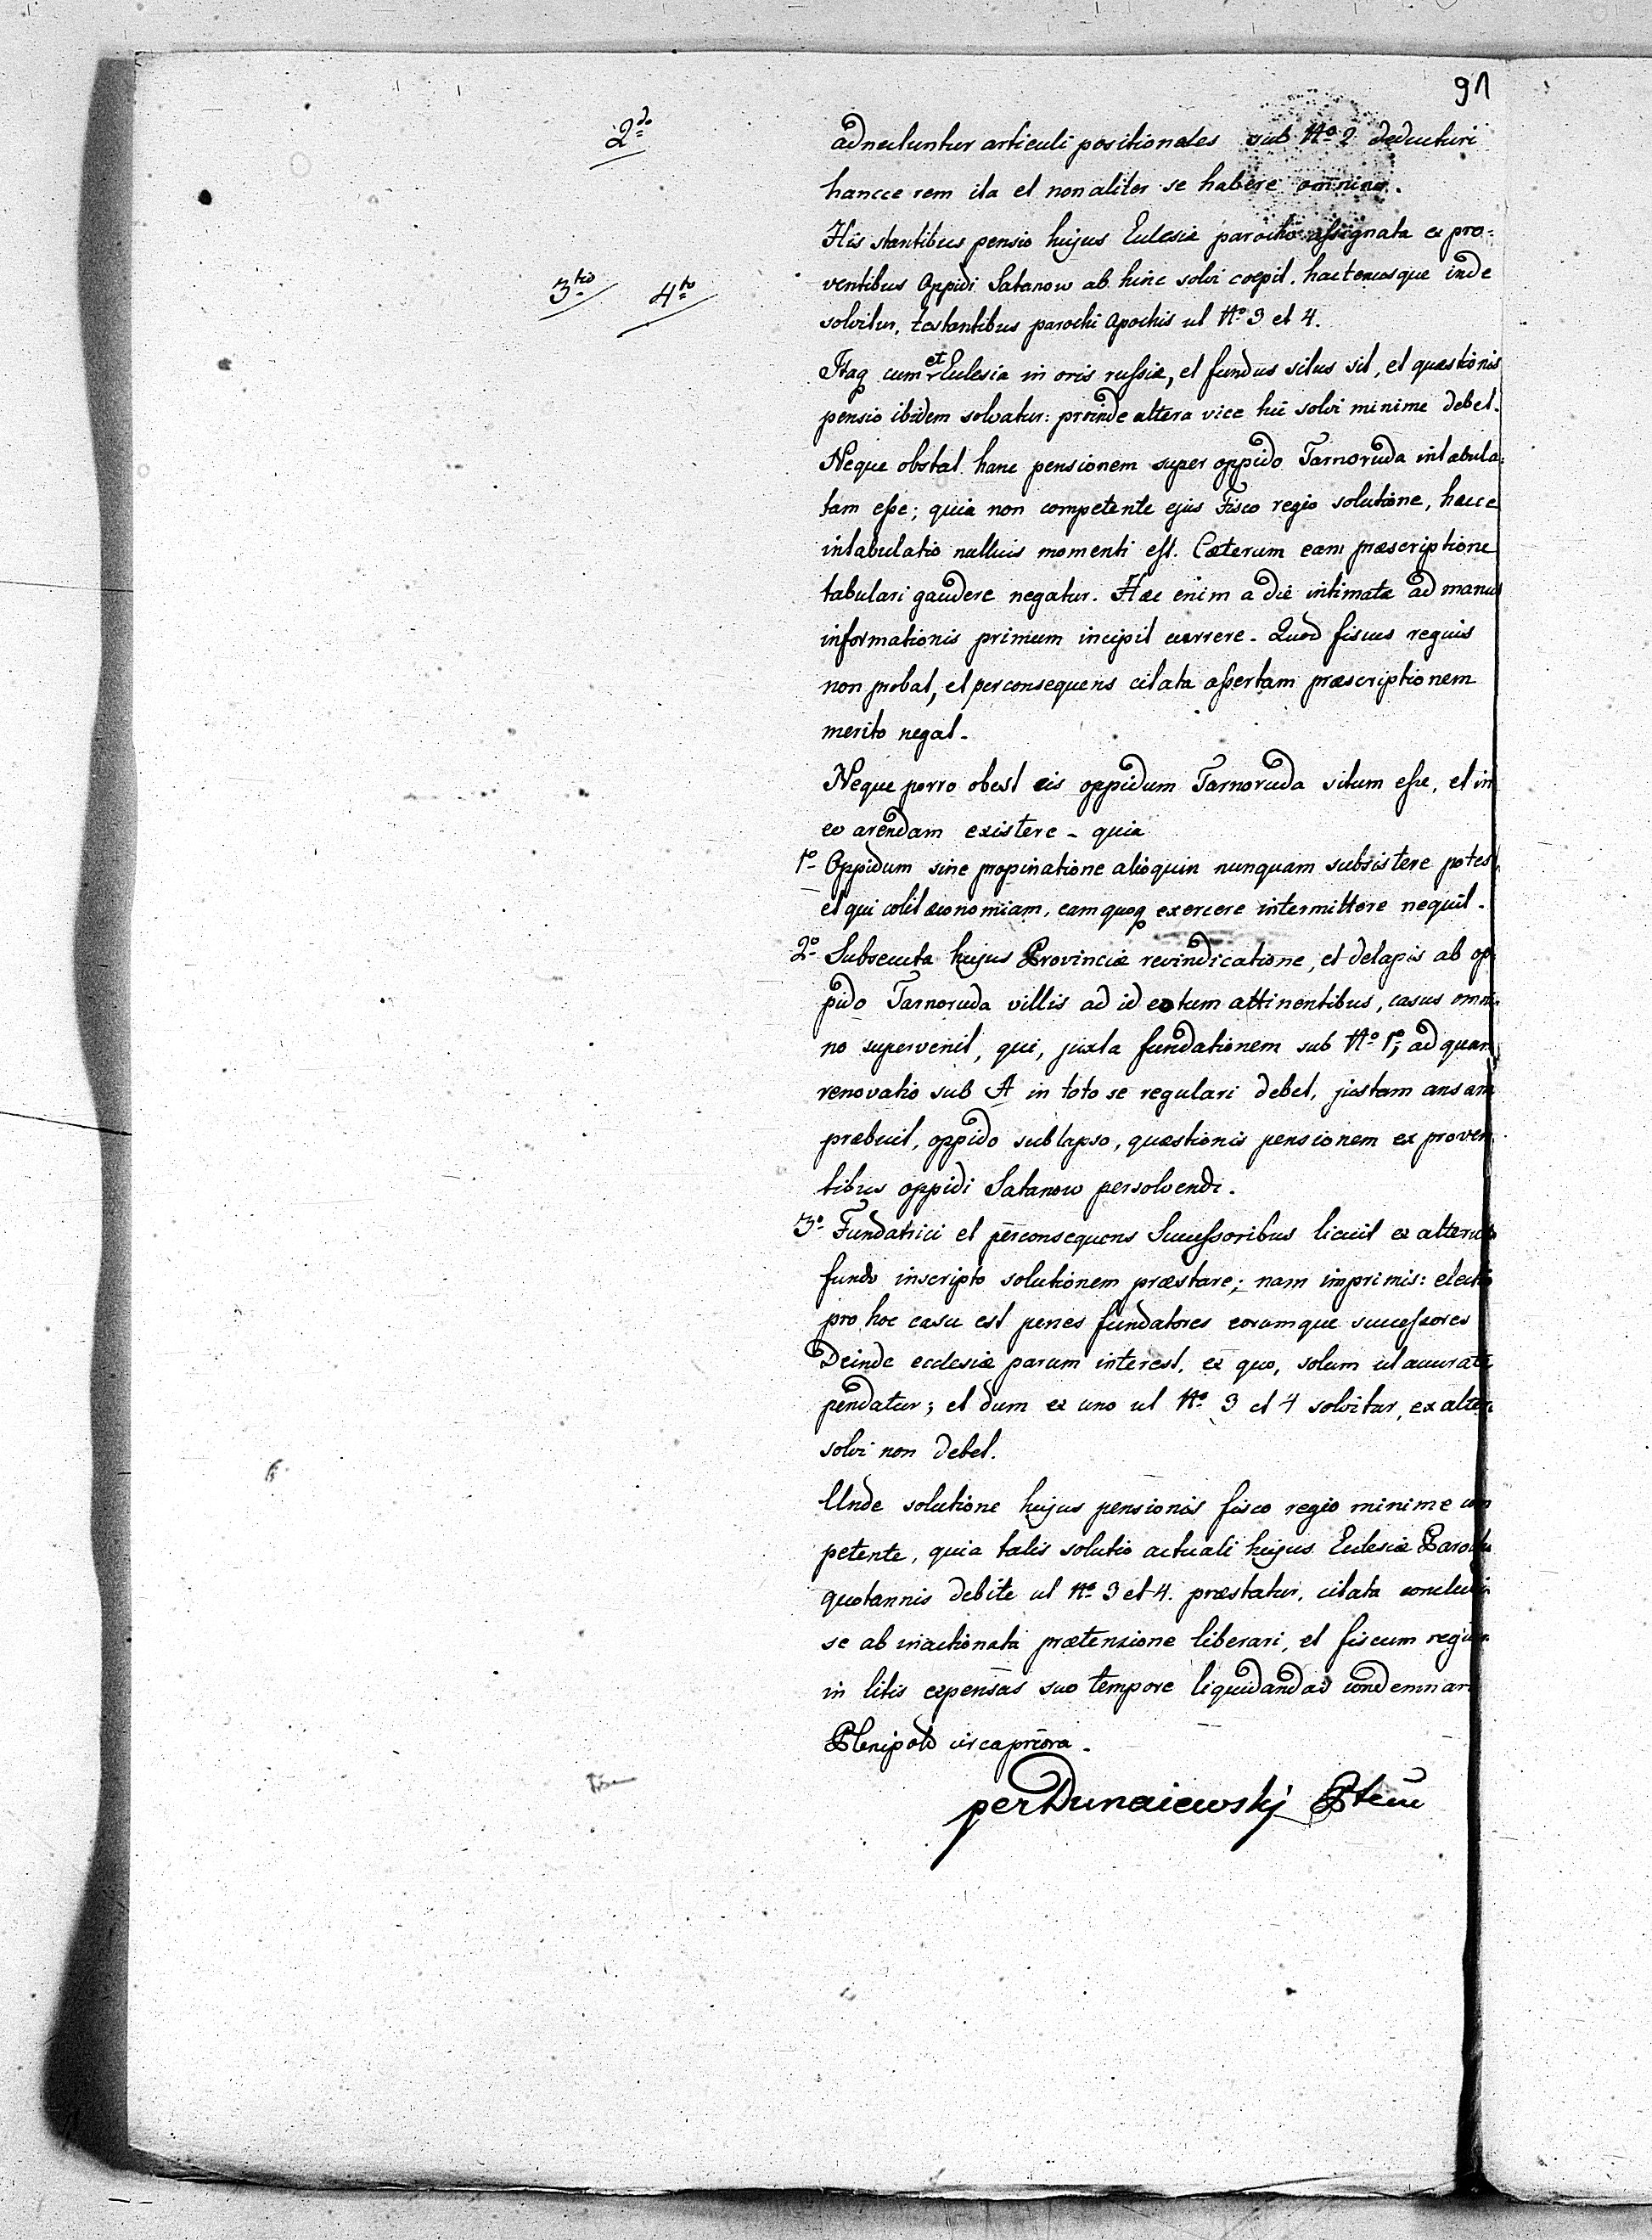 91
2do
adnectuntur articuli positionales sub No 2 deducturi
hancce rem ita et non aliter se habere omnino.
His stantibus pensio hujus Eclesiæ parocho assignata ex pro=
3tio 4to
ventibus Oppidi Satanow ab hinc solvi coepit, hactenusque inde
solvitur, testantibus parochi Apochis ut No 3 et 4.
Itaq cum et Eclesia in oris russiæ, et fundus situs sit, et quæstionis
pensio ibidem solvatur: proinde altera vice hic solvi minime debet.
Neque obstat hanc pensionem super oppido Tarnoruda intabula=
tam esse; quia non competente ejus Fisco regio solutione, hæcce
intabulatio nullius momenti est. Cæterum eam præscriptione
tabulari gaudere negatur. Hæc enim a die intimatæ ad manus
informationis primum incipit currere. Quod fiscus regius
non probat, et perconsequens citata assertam præscriptionem
merito negat.
Neque porro obest cis oppidum Tarnoruda situm esse, et in
eo arendam existere - quia
1o Oppidum sine propinatione alioquin nunquam subsistere potest,
et qui colit æconomiam, eam quoq exercere intermittere nequit.
2o Subsecuta hujus Provinciæ revindicatione, et delapsis ab op=
pido Tarnoruda villis ad id eotum attinentibus, casus omni=
no supervenit, qui, juxta fundationem sub No 1o, ad quam
renovatio sub A in toto se regulari debet, justam ansam
præbuit, oppido sublapso, quæstionis pensionem ex proven
tibus oppidi Satanow persolvendi.
3o Fundatrici et perconsequens Successoribus licuit ex alterut
fundo inscripto solutionem præstare; nam imprimis: electio
pro hoc casu est penes fundatores eorumque successores
Deinde ecclesiæ parum interest, ex quo, solum ut accurate
pendatur; et dum ex uno ut No 3 et 4 solvitur, ex alter
solvi non debet.
Unde solutione hujus pensionis fisco regio minime com
petente, quia talis solutio actuali hujus Eclesiæ Parocho
quotannis debite ut No 3 et 4. præstatur, citata concludit
se ab inactionata prætensione liberari, et fiscum regium
in litis expensas suo tempore liquidandas condemnari
Plenipoto circa priora.
per Dunaiewskj